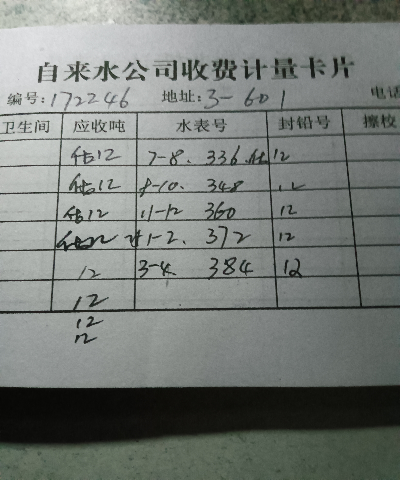 自来水公司收费计量卡片
编号:172246 地址:3-601 电话
卫生间 应收吨 水表号 封铅号 擦校
估12 7-8. 336. 估12
估12 8-10. 348 12
估12 11-12 360 12
估12 1-2. 372 12
12 3-4. 384 12
12
12
12